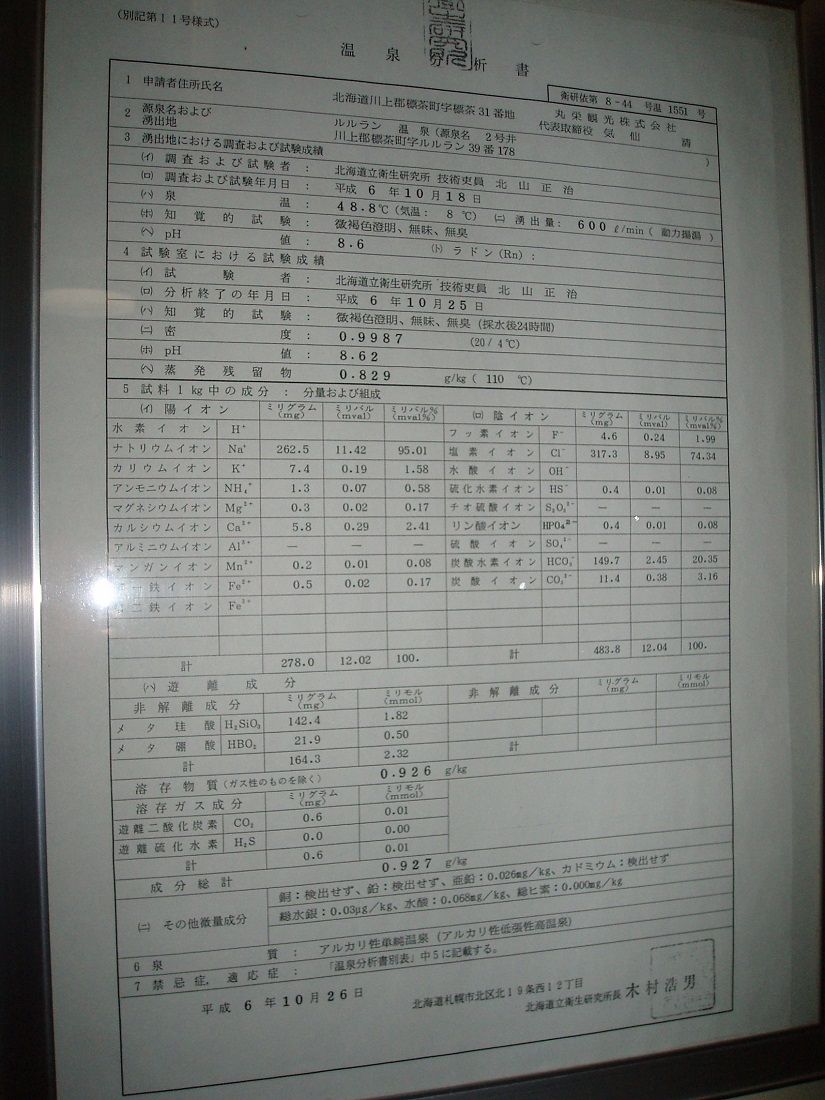 (別記第11号様式)
温泉分析書
衛研依第 8-44 号温 1551 号
1 申請者住所氏名 北海道川上郡標茶町字標茶31番地 丸栄観光株式会社
代表取締役 気仙 清
2 源泉名および湧出地 ルルラン 温泉(源泉名 2号井 )
川上郡標茶町字ルルラン39番178
3 湧出地における調査および試験成績
(イ) 調査および試験者: 北海道立衛生研究所 技術吏員 北山正治
(ロ) 調査および試験年月日: 平成 6 年10月18日
(ハ) 泉温: 48.8℃(気温: 8 ℃) (ニ) 湧出量: 600 ℓ/min(動力揚湯)
(ホ) 知覚的試験: 微褐色澄明、無味、無臭
(ヘ) pH値: 8.6 (ト) ラドン(Rn):
4 試験室における試験成績
(イ) 試験者: 北海道立衛生研究所 技術吏員 北山正治
(ロ) 分析終了の年月日: 平成 6 年10月25日
(ハ) 知覚的試験: 微褐色澄明、無味、無臭(採水後24時間)
(ニ) 密度: 0.9987 (20/4℃)
(ホ) pH値: 8.62
(ヘ) 蒸発残留物 0.829 g/kg( 110 ℃)
5 試料1kg中の成分: 分量および組成
(イ) 陽イオン ミリグラム(mg) ミリバル(mval) ミリバル%(mval%) (ロ) 陰イオン ミリグラム(mg) ミリバル(mval) ミリバル%(mval%)
水素イオン H⁺ フッ素イオン F⁻ 4.6 0.24 1.99
ナトリウムイオン Na⁺ 262.5 11.42 95.01 塩素イオン Cl⁻ 317.3 8.95 74.34
カリウムイオン K⁺ 7.4 0.19 1.58 水酸イオン OH⁻
アンモニウムイオン NH₄⁺ 1.3 0.07 0.58 硫化水素イオン HS⁻ 0.4 0.01 0.08
マグネシウムイオン Mg²⁺ 0.3 0.02 0.17 チオ硫酸イオン S₂O₃²⁻ — — —
カルシウムイオン Ca²⁺ 5.8 0.29 2.41 リン酸イオン HPO₄²⁻ 0.4 0.01 0.08
アルミニウムイオン Al³⁺ — — — 硫酸イオン SO₄²⁻ — — —
マンガンイオン Mn²⁺ 0.2 0.01 0.08 炭酸水素イオン HCO₃⁻ 149.7 2.45 20.35
鉄イオン Fe²⁺ 0.5 0.02 0.17 炭酸イオン CO₃²⁻ 11.4 0.38 3.16
二鉄イオン Fe³⁺
計 278.0 12.02 100. 計 483.8 12.04 100.
(ハ) 遊離成分
非解離成分 ミリグラム(mg) ミリモル(mmol) 非解離成分 ミリグラム(mg) ミリモル(mmol)
メタ珪酸 H₂SiO₃ 142.4 1.82
メタ硼酸 HBO₂ 21.9 0.50
計 164.3 2.32 計
溶存物質(ガス性のものを除く) 0.926 g/kg
溶存ガス成分 ミリグラム(mg) ミリモル(mmol)
遊離二酸化炭素 CO₂ 0.6 0.01
遊離硫化水素 H₂S 0.0 0.00
計 0.6 0.01
成分総計 0.927 g/kg
(ニ) その他微量成分 銅:検出せず、鉛:検出せず、亜鉛:0.026mg/kg、カドミウム:検出せず
総水銀:0.03μg/kg、水酸:0.068mg/kg、総ヒ素:0.000mg/kg
6 泉質: アルカリ性単純温泉(アルカリ性低張性高温泉)
7 禁忌症、適応症: 「温泉分析書別表」中5に記載する。
平成 6 年10月26日
北海道札幌市北区北19条西12丁目
北海道立衛生研究所長 木村浩男